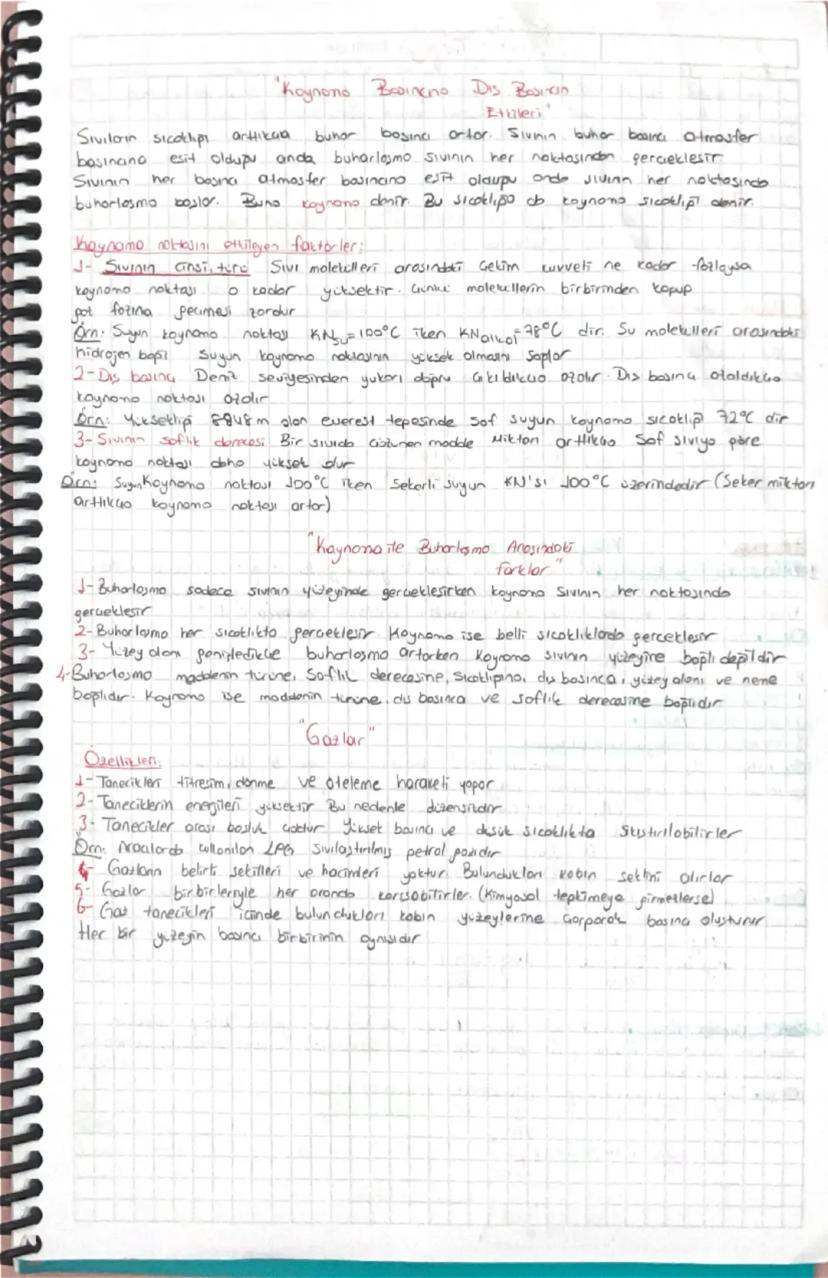 "Kaynama Basıncına Dış Basıncın
Etkileri"
Sıvıların sıcaklığı arttıkça buhar basıncı artar. Sıvının buhar basıncı atmosfer
basıncına eşit olduğu anda buharlaşma sıvının her noktasından gerçekleşir
Sıvının her basıncı atmosfer basıncına eşit olduğu anda sıvının her noktasında
buharlaşma başlar. Buna kaynama denir. Bu sıcaklığa da kaynama sıcaklığı denir.
Kaynama noktasını etkileyen faktörler:
1- Sıvının cinsi, türü Sıvı molekülleri arasındaki çekim kuvveti ne kadar fazlaysa
kaynama noktası o kadar yüksektir. Çünkü moleküllerin birbirinden kopup
gaz fazına geçmesi zordur
Örn: Suyun kaynama noktası KNsu=100°C iken KNalkol=78°C dir. Su molekülleri arasındaki
hidrojen bağı suyun kaynama noktasının yüksek olmasını sağlar
2-Dış basınç Deniz seviyesinden yukarı doğru çıkıldıkça azalır. Dış basınç azaldıkça
kaynama noktası azalır
Örn: Yüksekliği 8848m olan everest tepesinde saf suyun kaynama sıcaklığı 72°C dir
3-Sıvının saflık derecesi Bir sıvıda çözünen madde miktarı arttıkça saf sıvıya göre
kaynama noktası daha yüksek olur
Örn: Suyun Kaynama noktası 100°C iken Şekerli suyun KN'sı 100°C üzerindedir (Şeker miktarı
arttıkça kaynama noktası artar)
"Kaynama ile Buharlaşma Arasındaki
farklar"
1-Buharlaşma sadece sıvının yüzeyinde gerçekleşirken kaynama sıvının her noktasında
gerçekleşir
2-Buharlaşma her sıcaklıkta gerçekleşir Kaynama ise belli sıcaklıklarda gerçekleşir
3- Yüzey alanı genişledikçe buharlaşma artarken Kaynama sıvının yüzeyine bağlı değildir
4-Buharlaşma maddenin türüne, saflık derecesine, sıcaklığına, dış basınca, yüzey alanı ve neme
bağlıdır. Kaynama ise maddenin türüne, dış basınca ve saflık derecesine bağlıdır
"Gazlar"
Özellikleri:
1-Tanecikleri titreşim, dönme ve öteleme hareketi yapar
2-Taneciklerin enerjileri yüksektir Bu nedenle düzensizdir
3- Tanecikler arası boşluk çoktur Yüksek basınç ve düşük sıcaklıkta sıkıştırılabilirler
Örn: Araçlarda kullanılan LPG sıvılaştırılmış petrol gazıdır
4- Gazların belirli şekilleri ve hacimleri yoktur. Bulundukları kabın şeklini alırlar
5- Gazlar birbirleriyle her oranda karışabilirler. (Kimyasal tepkimeye girmezlerse)
6- Gaz tanecikleri içinde bulundukları kabın yüzeylerine çarparak basınç oluşturur
Her bir yüzeyin basıncı birbirinin aynısıdır